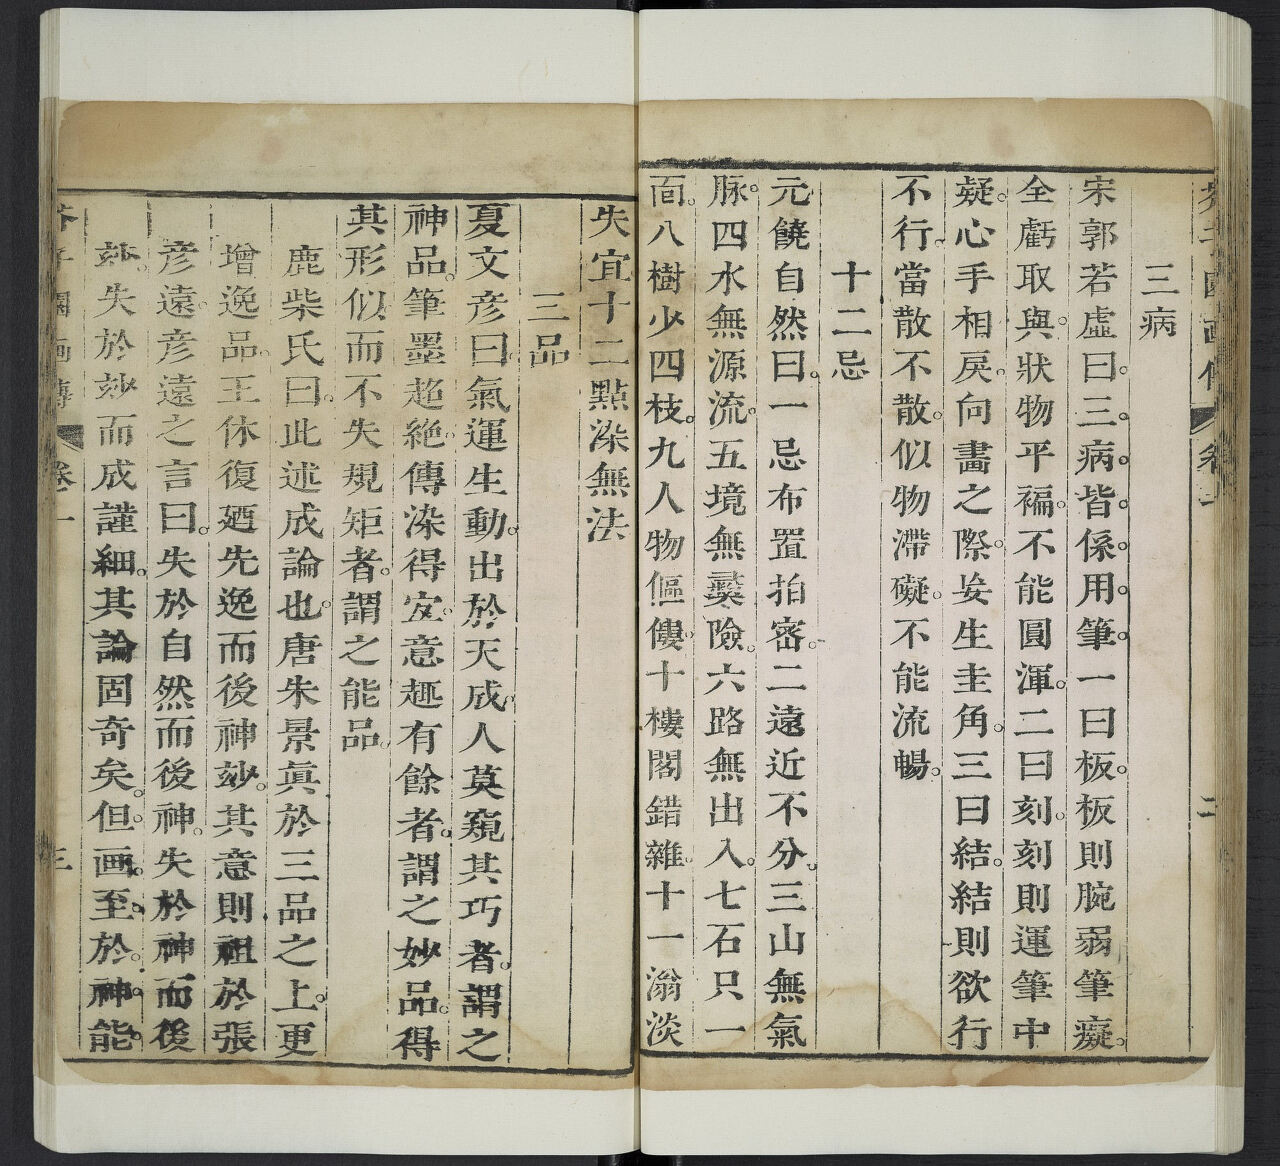 三病
宋郭若虛曰。三。病。皆。係。用。筆。一曰板。板則腕弱筆癡。
全虧取與。狀物平褊。不能圓渾。二曰刻。刻則運筆中
疑。心手相戾。向畵之際。妄生圭角。三曰結。結則欲行
不行。當散不散。似物滯礙。不能流暢。
十二忌
元饒自然曰。一忌布置拍密。二遠近不分。三山無氣
脉。四水無源流。五境無夷險。六路無出入。七石只一
靣。八樹少四枝。九人物傴僂。十樓閣錯雜。十一滃淡
失宜十二點染無法
三品
夏文彦曰。氣運生動。出於天成。人莫窺其巧者。謂之
神品。筆墨超絶。傳染得宜。意趣有餘者。謂之妙品。得
其形似而不失規矩者。謂之能品。
鹿柴氏曰。此述成論也。唐朱景眞於三品之上。更
增逸品。王休復廼先逸而後神玅。其意則祖於張
彦遠。彦遠之言曰。失於自然而後神。失於神而後
玅。失於玅而成謹細。其論固奇矣。但。画。至。於。神。能。
芥子園画傳
卷一
三